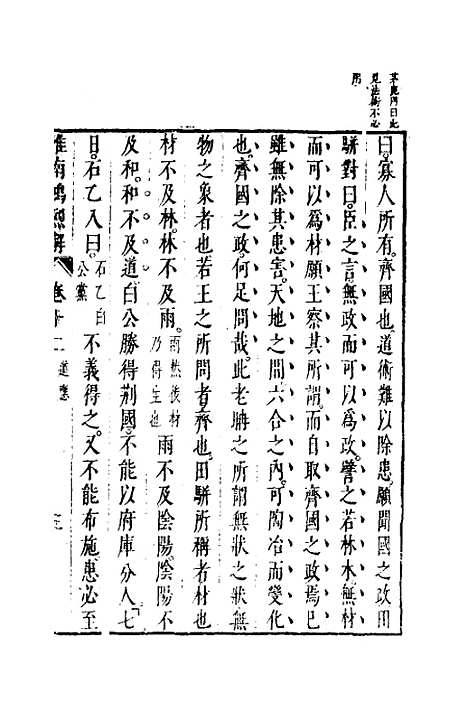 茅鹿門曰此
見法術不必
用
曰寡人所有齊國也道術難以除患願聞國之政田
駢對曰臣之言無政而可以為政譬之若林木無材
而可以為材願王察其所謂而自取齊國之政焉已
雖無除其患害天地之間六合之內可陶冶而變化
也齊國之政何足問哉此老聃之所謂無狀之狀無
物之象者也若王之所問者齊也田駢所稱者材也
材不及林林不及雨雨然後材乃得生也雨不及陰陽陰陽不
及和和不及道白公勝得荆國不能以府庫分人七
日石乙入曰石乙白公黨不義得之又不能布施患必至
淮南鴻烈解 卷十二 道應